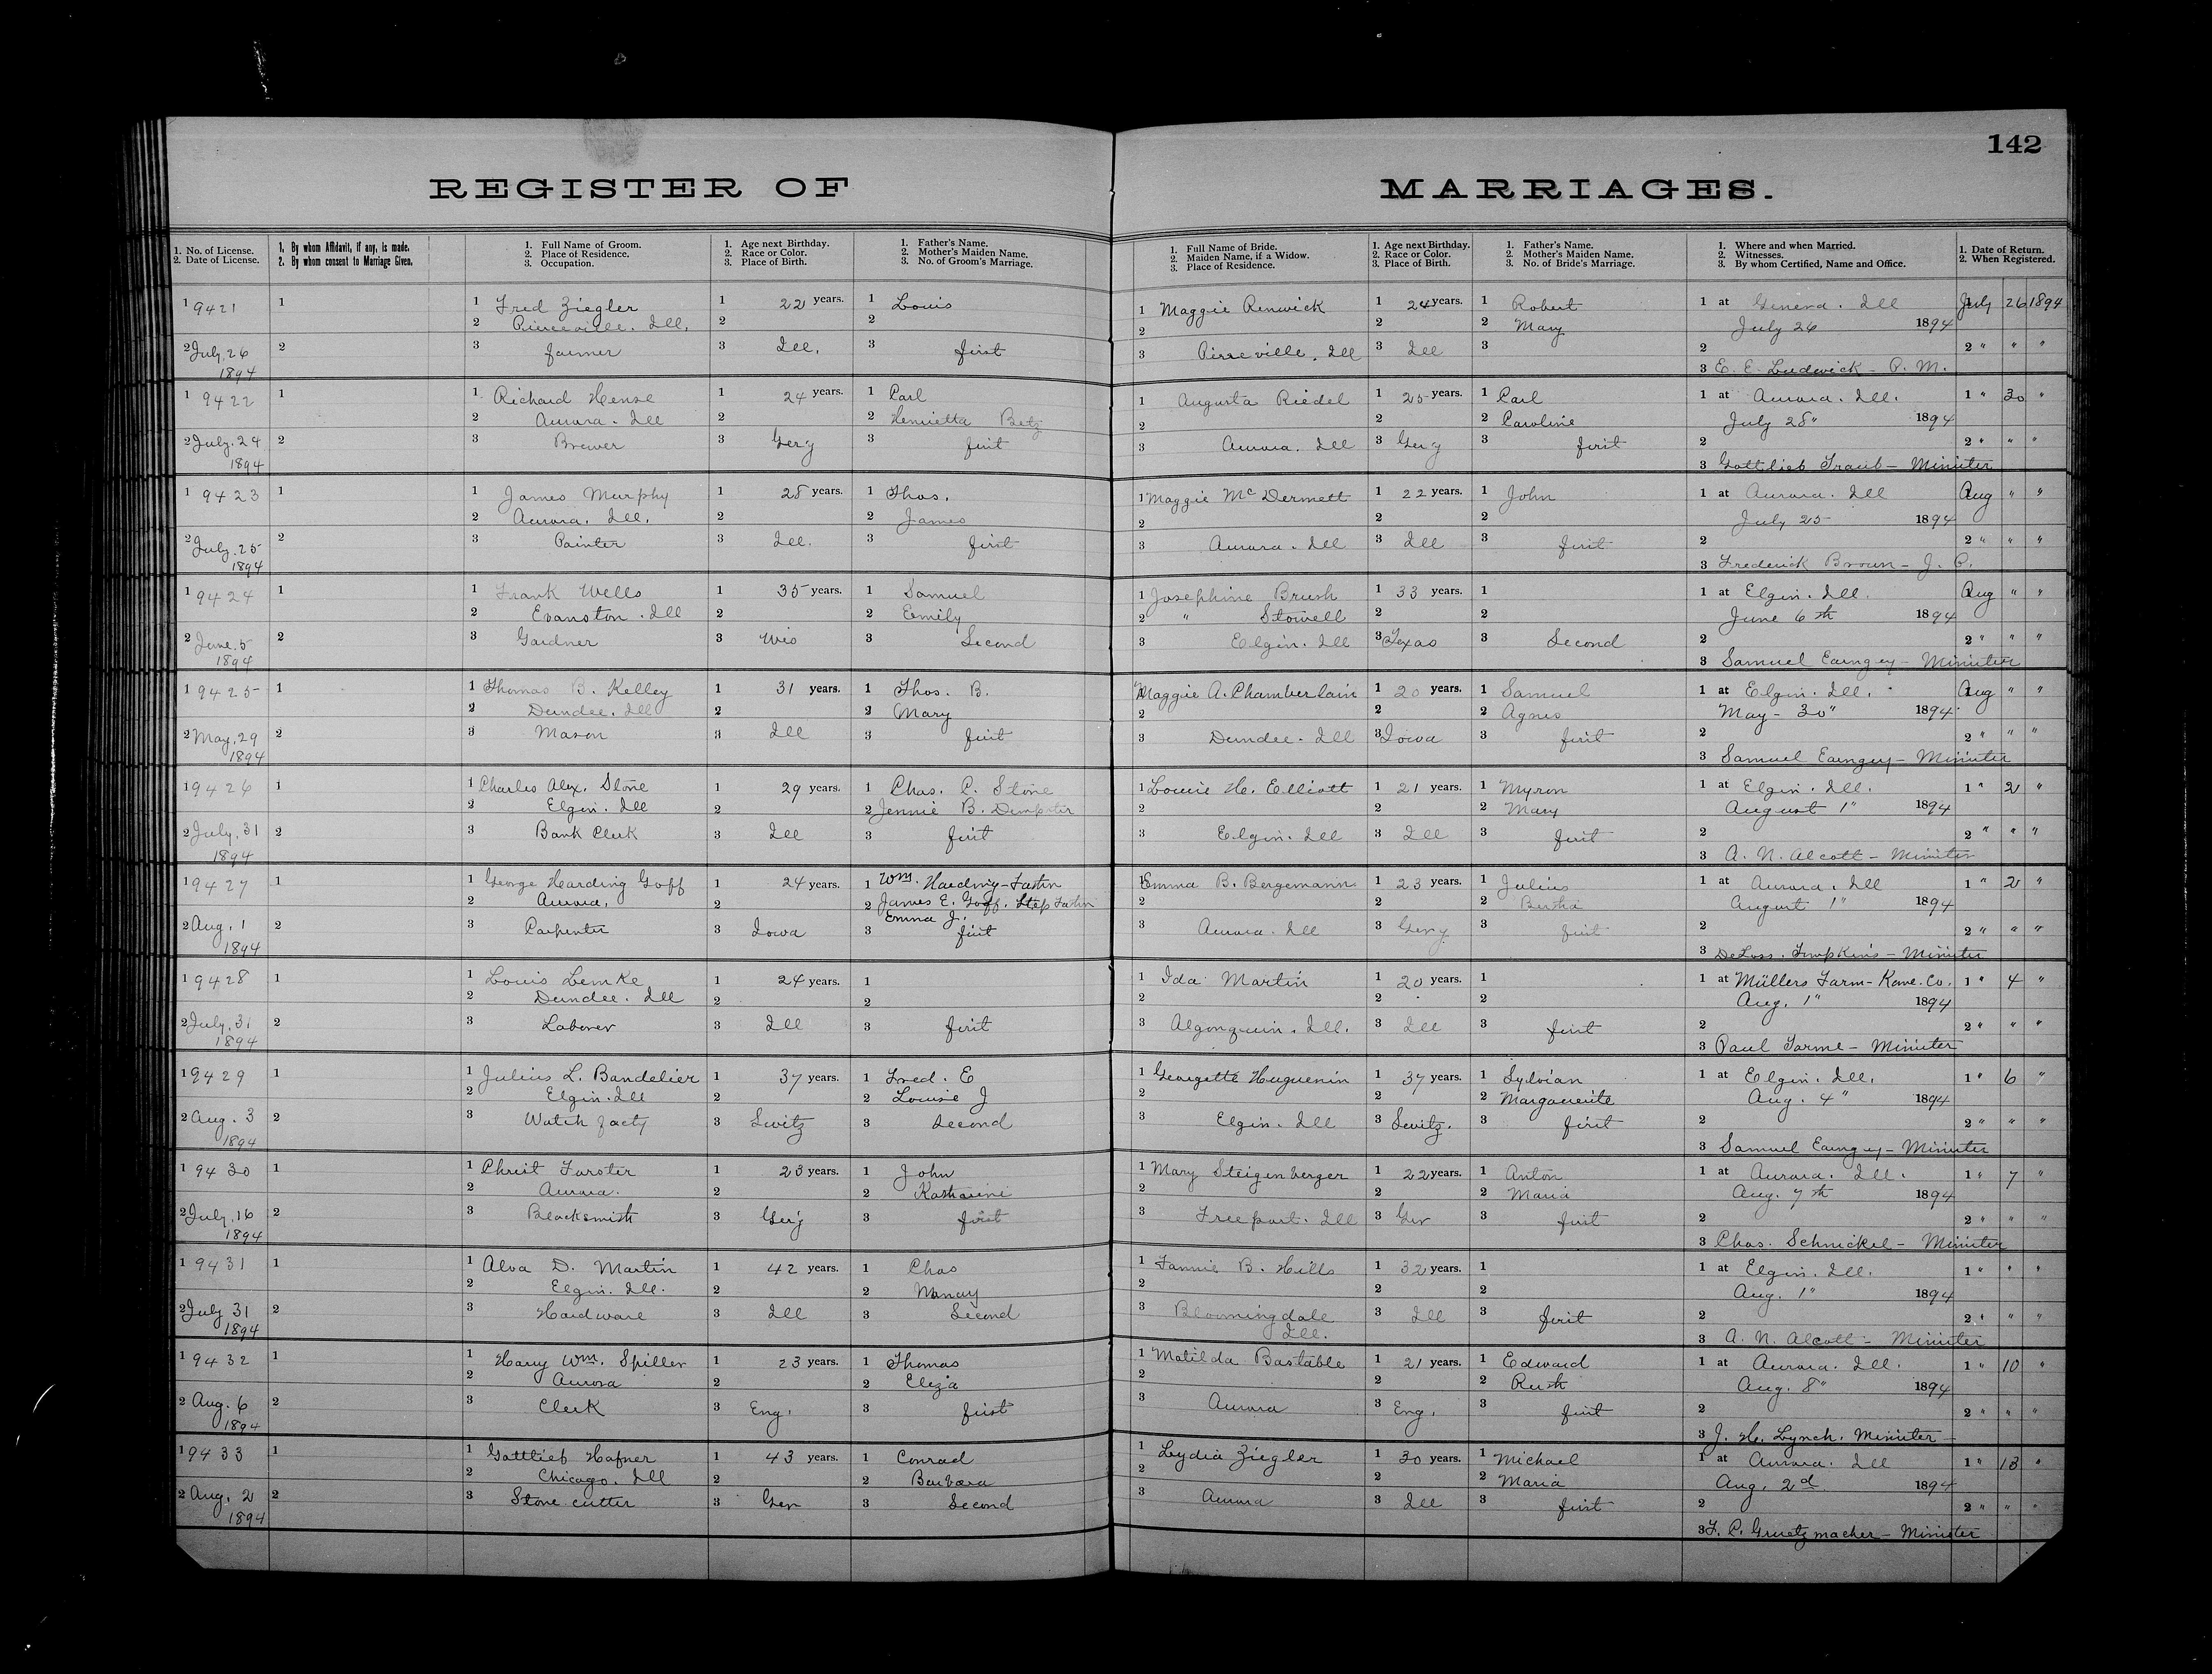 142
REGISTER OF MARRIAGES.
1. No. of License.
2. Date of License.
1. By whom Affidavit, if any, is made.
2. By whom consent to Marriage Given.
1. Full Name of Groom.
2. Place of Residence.
3. Occupation.
1. Age next Birthday.
2. Race or Color.
3. Place of Birth.
1. Father's Name.
2. Mother's Maiden Name.
3. No. of Groom's Marriage.
1. Full Name of Bride.
2. Maiden Name, if a Widow.
3. Place of Residence.
1. Age next Birthday.
2. Race or Color.
3. Place of Birth.
1. Father's Name.
2. Mother's Maiden Name.
3. No. of Bride's Marriage.
1. Where and when Married.
2. Witnesses.
3. By whom Certified, Name and Office.
1. Date of Return.
2. When Registered.
1 9421 1 1 Fred Ziegler 1 22 years. 1 Louis 1 Maggie Renwick 1 24 years. 1 Robert 1 at Geneva. Ill July 26 1894
2 Pierceville. Ill. 2 2 2 2 2 Mary July 26 1894
2 July. 26 1894 2 3 farmer 3 Ill. 3 first 3 Pirreville. Ill 3 Ill 3 2 2 " " "
3 E. E. Ludwick - P. M.
1 9422 1 1 Richard Hense 1 24 years. 1 Carl 1 Augusta Riedel 1 25 years. 1 Carl 1 at Aurora. Ill. 1 " 30 "
2 Aurora. Ill 2 2 Henrietta Betz 2 2 2 Caroline July 28" 1894
2 July. 24 1894 2 3 Brewer 3 Gery 3 first 3 Aurora. Ill 3 Gery 3 first 2 2 " " "
3 Gottlieb Traub - Minister
1 9423 1 1 James Murphy 1 28 years. 1 Thos. 1 Maggie McDermett 1 22 years. 1 John 1 at Aurora. Ill Aug " "
2 Aurora. Ill. 2 2 James 2 2 2 July 25 1894
2 July. 25 1894 2 3 Painter 3 Ill. 3 first 3 Aurora. Ill 3 Ill 3 first 2 2 " " "
3 Frederick Brown - J. P.
1 9424 1 1 Frank Wells 1 35 years. 1 Samuel 1 Josephine Brush 1 33 years. 1 1 at Elgin. Ill. Aug " "
2 Evanston. Ill 2 2 Emily 2 " Stowell 2 2 June 6th 1894
2 June. 5 1894 2 3 Gardner 3 Wis 3 Second 3 Elgin. Ill 3 Texas 3 Second 2 2 " " "
3 Samuel Earngey - Minister
1 9425 1 1 Thomas B. Kelley 1 31 years. 1 Thos. B. 1 Maggie A. Chamberlain 1 20 years. 1 Samuel 1 at Elgin. Ill. Aug " "
2 Dundee. Ill 2 2 Mary 2 2 2 Agnes May - 30" 1894
2 May. 29 1894 2 3 Mason 3 Ill 3 first 3 Dundee. Ill 3 Iowa 3 first 2 2 " " "
3 Samuel Earngey - Minister
1 9426 1 1 Charles Alex. Stone 1 29 years. 1 Chas. C. Stone 1 Louie H. Elliott 1 21 years. 1 Myron 1 at Elgin. Ill. 1 " 2 "
2 Elgin. Ill 2 2 Jennie B. Dempster 2 2 2 Mary August 1" 1894
2 July. 31 1894 2 3 Bank Clerk 3 Ill 3 first 3 Elgin. Ill 3 Ill 3 first 2 2 " " "
3 A. N. Alcott - Minister
1 9427 1 1 George Harding Goff 1 24 years. 1 Wm. Harding - Father 1 Emma B. Bergemann 1 23 years. 1 Julius 1 at Aurora. Ill 1 " 2 "
2 Aurora. 2 2 James E. Goff. Step Father 2 2 2 Bertha August 1" 1894
Emma J.
2 Aug. 1 1894 2 3 Carpenter 3 Iowa 3 first 3 Aurora. Ill 3 Gery 3 first 2 2 " " "
3 DeLoss. Tompkins - Minister
1 9428 1 1 Louis Lemke 1 24 years. 1 1 Ida Martin 1 20 years. 1 1 at Müllers Farm - Kane. Co. 1 " 4 "
2 Dundee. Ill 2 2 2 2 2 Aug. 1" 1894
2 July. 31 1894 2 3 Laborer 3 Ill 3 first 3 Algonquin. Ill. 3 Ill 3 first 2 2 " " "
3 Paul - Minister
1 9429 1 1 Julius L. Bandelier 1 37 years. 1 Fred. E 1 Georgette Huguenin 1 37 years. 1 Sylvian 1 at Elgin. Ill. 1 " 6 "
2 Elgin. Ill 2 2 Louise J 2 2 2 Marguerite Aug. 4" 1894
2 Aug. 3 1894 2 3 Watch facty 3 Switz 3 Second 3 Elgin. Ill 3 Switz. 3 first 2 2 " " "
3 Samuel Earngey - Minister
1 9430 1 1 Christ Furster 1 23 years. 1 John 1 Mary Steigenberger 1 22 years. 1 Anton 1 at Aurora. Ill. 1 " 7 "
2 Aurora. 2 2 Katharine 2 2 2 Maria Aug. 7th 1894
2 July. 16 1894 2 3 Blacksmith 3 Gery 3 first 3 Freeport. Ill 3 Ger 3 first 2 2 " " "
3 Chas. Schnickel - Minister
1 9431 1 1 Alva D. Martin 1 42 years. 1 Chas 1 Fannie B. Hills 1 32 years. 1 1 at Elgin. Ill. 1 " " "
2 Elgin. Ill. 2 2 Nancy 2 2 2 Aug. 1" 1894
2 July 31 1894 2 3 Hardware 3 Ill 3 Second 3 Bloomingdale Ill. 3 Ill 3 first 2 2 " " "
3 A. N. Alcott - Minister
1 9432 1 1 Harry Wm. Spiller 1 23 years. 1 Thomas 1 Matilda Bastable 1 21 years. 1 Edward 1 at Aurora. Ill. 1 " 10 "
2 Aurora 2 2 Eliza 2 2 2 Ruth Aug. 8" 1894
2 Aug. 6 1894 2 3 Clerk 3 Eng. 3 first 3 Aurora 3 Eng. 3 first 2 2 " " "
3 J. H. Lynch. Minister
1 9433 1 1 Gottlieb Hafner 1 43 years. 1 Conrad 1 Lydia Ziegler 1 30 years. 1 Michael 1 at Aurora. Ill 1 " 13 "
2 Chicago. Ill 2 2 Barbara 2 2 2 Maria Aug. 2d 1894
2 Aug. 2 1894 2 3 Stone cutter 3 Ger 3 Second 3 Aurora 3 Ill 3 first 2 2 " " "
3 F. C. Gruetzmacher - Minister